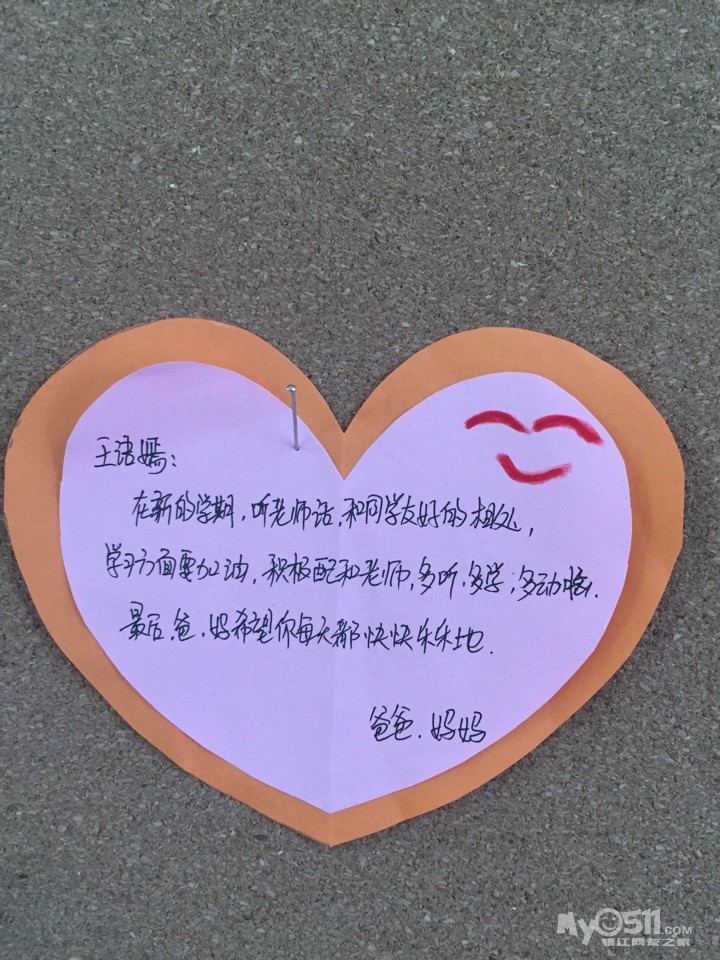 王语嫣:
在新的学期,听老师话,和同学友好的相处,
学习方面要加油,积极配和老师,多听,多学,多动脑.
最后,爸.妈希望你每天都快快乐乐地.
爸爸.妈妈
My0511.COM
镇江网友之家